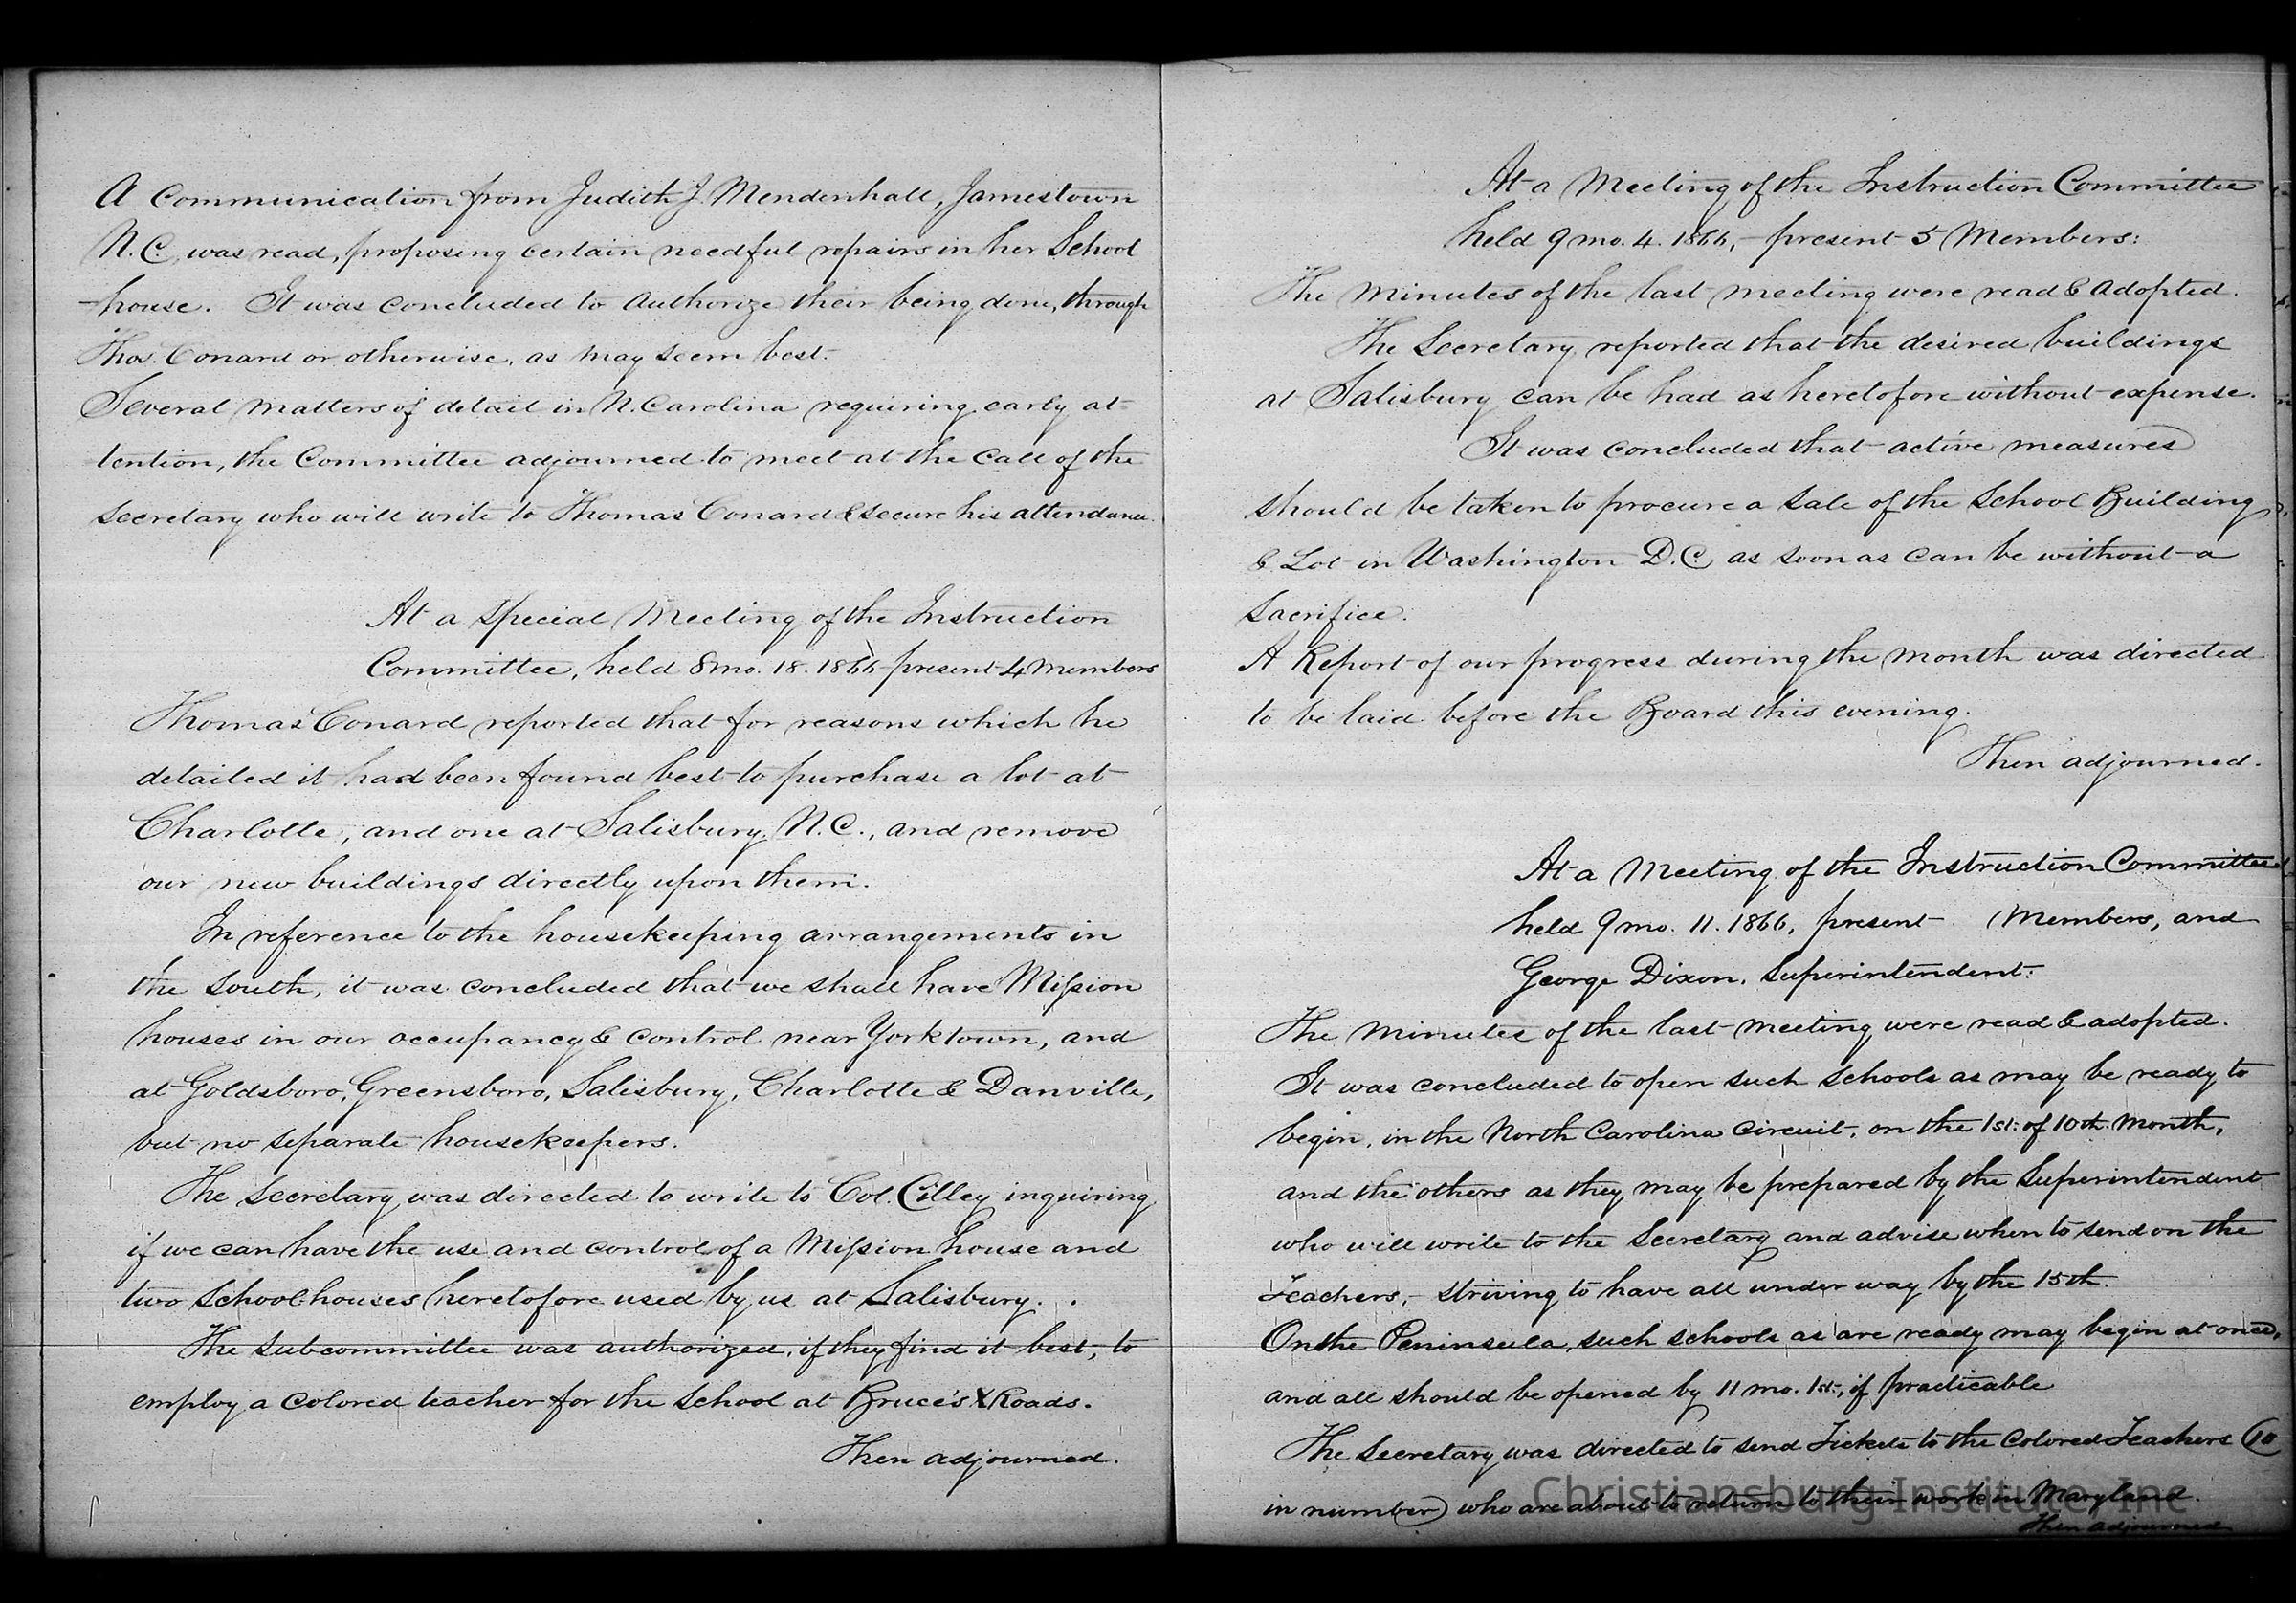 A Communication from Judith J. Mendenhall, Jamestown
N.C. was read, proposing certain needful repairs in her School
house. It was concluded to authorize their being done, through
Thos. Conard or otherwise, as may seem best.
Several matters of detail in N. Carolina requiring early at-
tention, the Committee adjourned to meet at the call of the
Secretary who will write to Thomas Conard & secure his attendance.
At a Special Meeting of the Instruction
Committee, held 8 mo. 18. 1866 present 4 members
Thomas Conard reported that for reasons which he
detailed it had been found best to purchase a lot at
Charlotte, and one at Salisbury, N.C., and remove
our new buildings directly upon them.
In reference to the housekeeping arrangements in
the South, it was concluded that we shall have Mission
houses in our occupancy & control near Yorktown, and
at Goldsboro, Greensboro, Salisbury, Charlotte & Danville,
but no separate housekeepers.
The Secretary was directed to write to Col. Cilley inquiring
if we can have the use and control of a Mission house and
two Schoolhouses heretofore used by us at Salisbury.
The Subcommittee was authorized, if they find it best, to
employ a Colored teacher for the School at Bruce's X Roads.
Then adjourned.
At a Meeting of the Instruction Committee
held 9 mo. 4. 1866, - present 5 Members:
The Minutes of the last meeting were read & adopted.
The Secretary reported that the desired buildings
at Salisbury can be had as heretofore without expense.
It was concluded that active measures
should be taken to procure a sale of the School Building
& Lot in Washington D.C. as soon as can be without a
sacrifice.
A Report of our progress during the month was directed
to be laid before the Board this evening.
Then adjourned.
At a Meeting of the Instruction Committee
held 9 mo. 11. 1866, present Members, and
George Dixon, Superintendent.
The Minutes of the last meeting were read & adopted.
It was concluded to open such Schools as may be ready to
begin, in the North Carolina Circuit, on the 1st of 10th Month,
and the others as they may be prepared by the Superintendent
who will write to the Secretary and advise when to send on the
Teachers, - striving to have all under way by the 15th.
On the Peninsula, such schools as are ready may begin at once,
and all should be opened by 11 mo. 1st, if practicable
The Secretary was directed to send Tickets to the Colored Teachers (10
in number) who are about to return to their work in Maryland.
Then adjourned
Christiansburg Institute, Inc